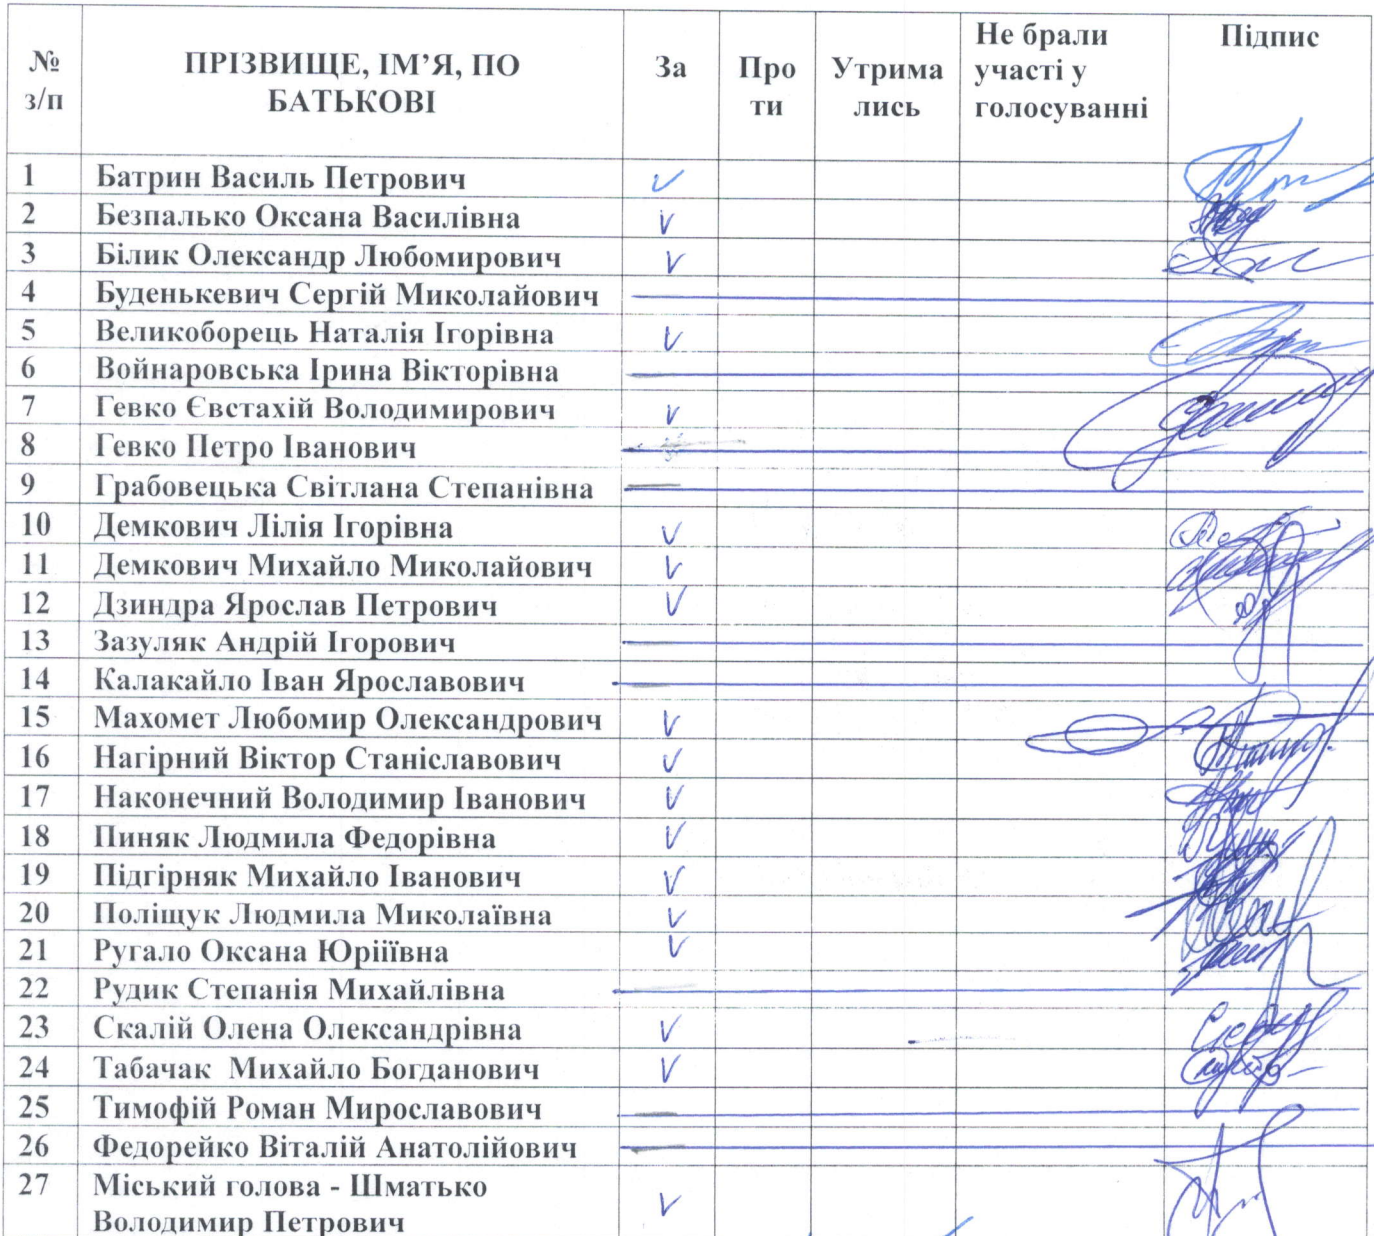 № з/п ПРІЗВИЩЕ, ІМ’Я, ПО БАТЬКОВІ За Про ти Утрима лись Не брали участі у голосуванні Підпис
1 Батрин Василь Петрович V
2 Безпалько Оксана Василівна V
3 Білик Олександр Любомирович V
4 Буденькевич Сергій Миколайович
5 Великоборець Наталія Ігорівна V
6 Войнаровська Ірина Вікторівна
7 Гевко Євстахій Володимирович V
8 Гевко Петро Іванович
9 Грабовецька Світлана Степанівна
10 Демкович Лілія Ігорівна V
11 Демкович Михайло Миколайович V
12 Дзиндра Ярослав Петрович V
13 Зазуляк Андрій Ігорович
14 Калакайло Іван Ярославович
15 Махомет Любомир Олександрович V
16 Нагірний Віктор Станіславович V
17 Наконечний Володимир Іванович V
18 Пиняк Людмила Федорівна V
19 Підгірняк Михайло Іванович V
20 Поліщук Людмила Миколаївна V
21 Ругало Оксана Юріїївна V
22 Рудик Степанія Михайлівна
23 Скалій Олена Олександрівна V
24 Табачак Михайло Богданович V
25 Тимофій Роман Мирославович
26 Федорейко Віталій Анатолійович
27 Міський голова - Шматько
Володимир Петрович V